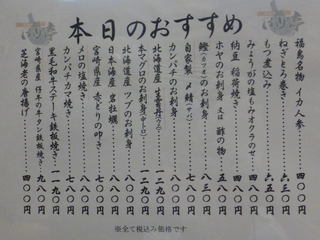 本日のおすすめ
福島名物 イカ人参 四〇〇円
ねぎとろ巻き 六三〇円
もつ煮込み 六五〇円
みょうがの塩もみオクラのせ 四〇〇円
納豆 稲荷焼き 四八〇円
ホヤのお刺身 又は 酢の物 五八〇円
鰹(カツオ)のお刺身 八三〇円
自家製 〆鯖(サバ) 七八〇円
カンパチのお刺身 八八〇円
北海道産 生雲丹 一二八〇円
北海道産 ツブのお刺身 八〇〇円
本マグロのお刺身 一二九〇円
日本海産 岩牡蠣 八〇〇円
宮崎県産 赤とりのゆき 七八〇円
カンパチカマ焼き 七八〇円
メロの塩焼き 七八〇円
黒毛和牛ステーキ鉄板焼き 一一九〇円
宮崎県産 仔牛の牛タン鉄板焼き 九八〇円
芝海老の唐揚げ 五八〇円
※全て税込み価格です